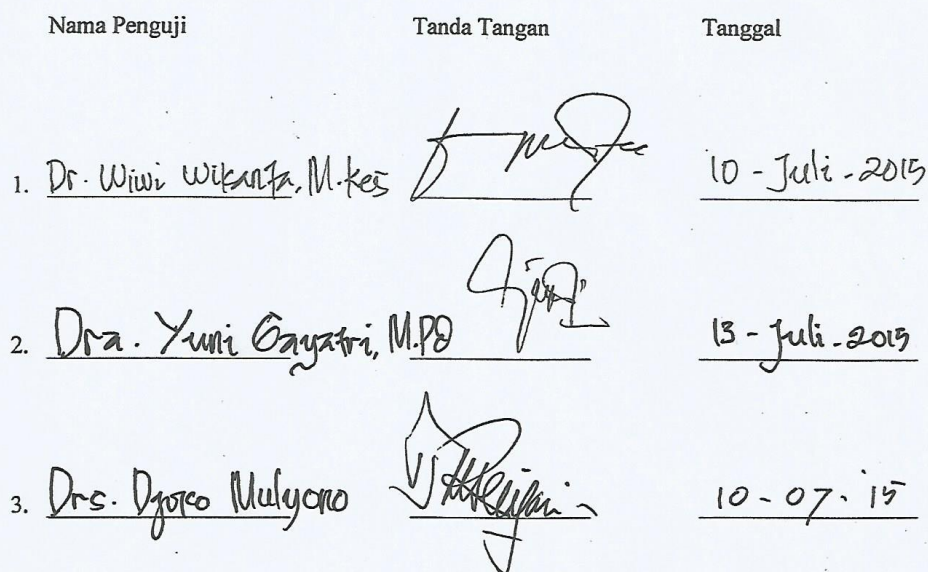 Nama Penguji Tanda Tangan Tanggal
1. Dr. Wiwi Wikanta, M.kes 10 - Juli - 2015
2. Dra. Yuni Gayatri, M.Pd 13 - Juli - 2015
3. Drs. Djoko Mulyono 10 - 07 - 15